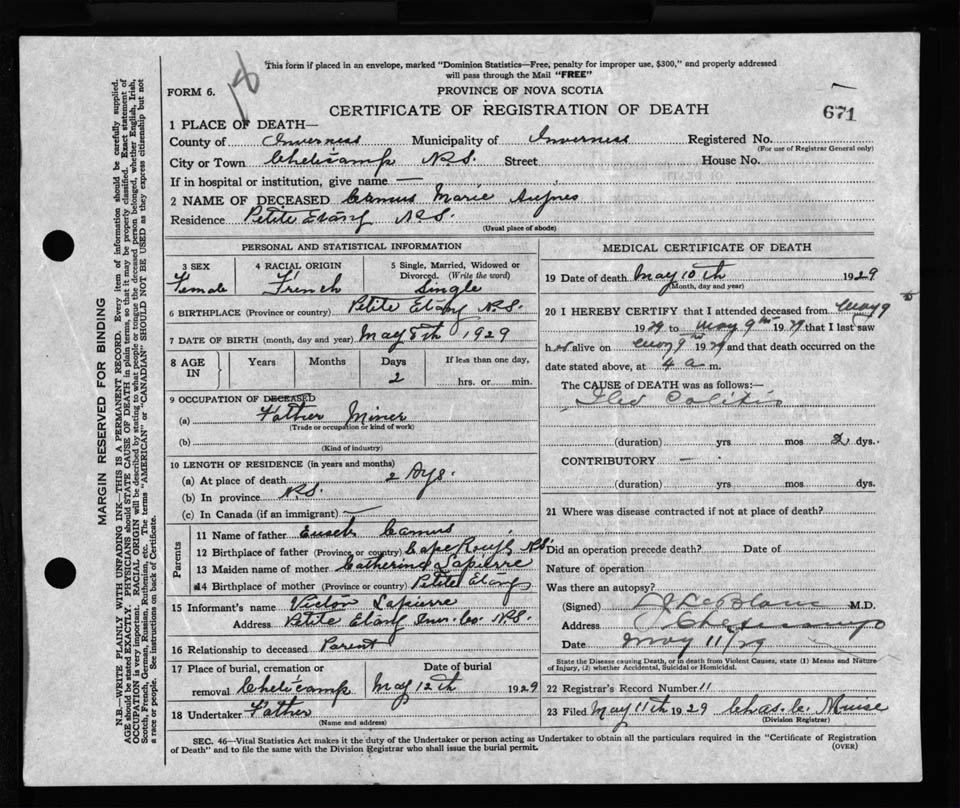 18
This form if placed in an envelope, marked "Dominion Statistics—Free, penalty for improper use, $300," and properly addressed
will pass through the Mail "FREE"
FORM 6.
PROVINCE OF NOVA SCOTIA
CERTIFICATE OF REGISTRATION OF DEATH
671
1 PLACE OF DEATH—
County of Inverness Municipality of Inverness Registered No.
(For use of Registrar General only)
City or Town Cheticamp N.S. Street House No.
If in hospital or institution, give name —
2 NAME OF DECEASED Camus Marie
Residence Petite Etang N.S.
(Usual place of abode)
PERSONAL AND STATISTICAL INFORMATION
3 SEX 4 RACIAL ORIGIN 5 Single, Married, Widowed or
Divorced. (Write the word)
Female French Single
6 BIRTHPLACE (Province or country) Petite Etang N.S.
7 DATE OF BIRTH (month, day and year) May 8th 1929
8 AGE IN Years Months Days If less than one day,
2 hrs. or min.
9 OCCUPATION OF DECEASED
(a) Father Miner
(Trade or occupation or kind of work)
(b)
(Kind of industry)
10 LENGTH OF RESIDENCE (in years and months)
(a) At place of death 2 Dys.
(b) In province N.S.
(c) In Canada (if an immigrant) —
Parents
11 Name of father Camus
12 Birthplace of father (Province or country) Cape Rough N.S.
13 Maiden name of mother Catherine Lapierre
14 Birthplace of mother (Province or country) Petite Etang
15 Informant's name Victor Lapierre
Address Petite Etang Inv. Co. N.S.
16 Relationship to deceased Parent
17 Place of burial, cremation or Date of burial
removal Cheticamp May 12th 1929
18 Undertaker Father
(Name and address)
MEDICAL CERTIFICATE OF DEATH
19 Date of death May 10th 1929
(Month, day and year)
20 I HEREBY CERTIFY that I attended deceased from May 9th
1929 to May 9th 1929 that I last saw
her alive on May 9th 1929 and that death occurred on the
date stated above, at 4 a m.
The CAUSE of DEATH was as follows:—
Ileo Colitis
(duration) yrs mos 2 dys.
CONTRIBUTORY —
(duration) yrs. mos. dys.
21 Where was disease contracted if not at place of death?
Did an operation precede death? Date of
Nature of operation
Was there an autopsy?
(Signed) LeBlanc M.D.
Address Cheticamp
Date May 11/29
State the Disease causing Death, or in death from Violent Causes, state (1) Means and Nature
of Injury, (2) whether Accidental, Suicidal or Homicidal.
22 Registrar's Record Number 11
23 Filed May 11th 1929 Chas. C. Muise
(Division Registrar)
SEC. 46—Vital Statistics Act makes it the duty of the Undertaker or person acting as Undertaker to obtain all the particulars required in the "Certificate of Registration
of Death" and to file the same with the Division Registrar who shall issue the burial permit.
(OVER)
MARGIN RESERVED FOR BINDING
N.B.—WRITE PLAINLY WITH UNFADING INK—THIS IS A PERMANENT RECORD. Every item of information should be carefully supplied.
AGE should be stated EXACTLY. PHYSICIANS should STATE CAUSE OF DEATH in plain terms, so that it may be properly classified. Exact statement of
OCCUPATION is very important. RACIAL ORIGIN will be described by stating to what people or tongue the deceased person belonged, whether English, Irish,
Scotch, French, German, Russian, Ruthenian, etc. The terms "AMERICAN" or "CANADIAN" SHOULD NOT BE USED as they express citizenship but not
a race or people. See instructions on back of Certificate.